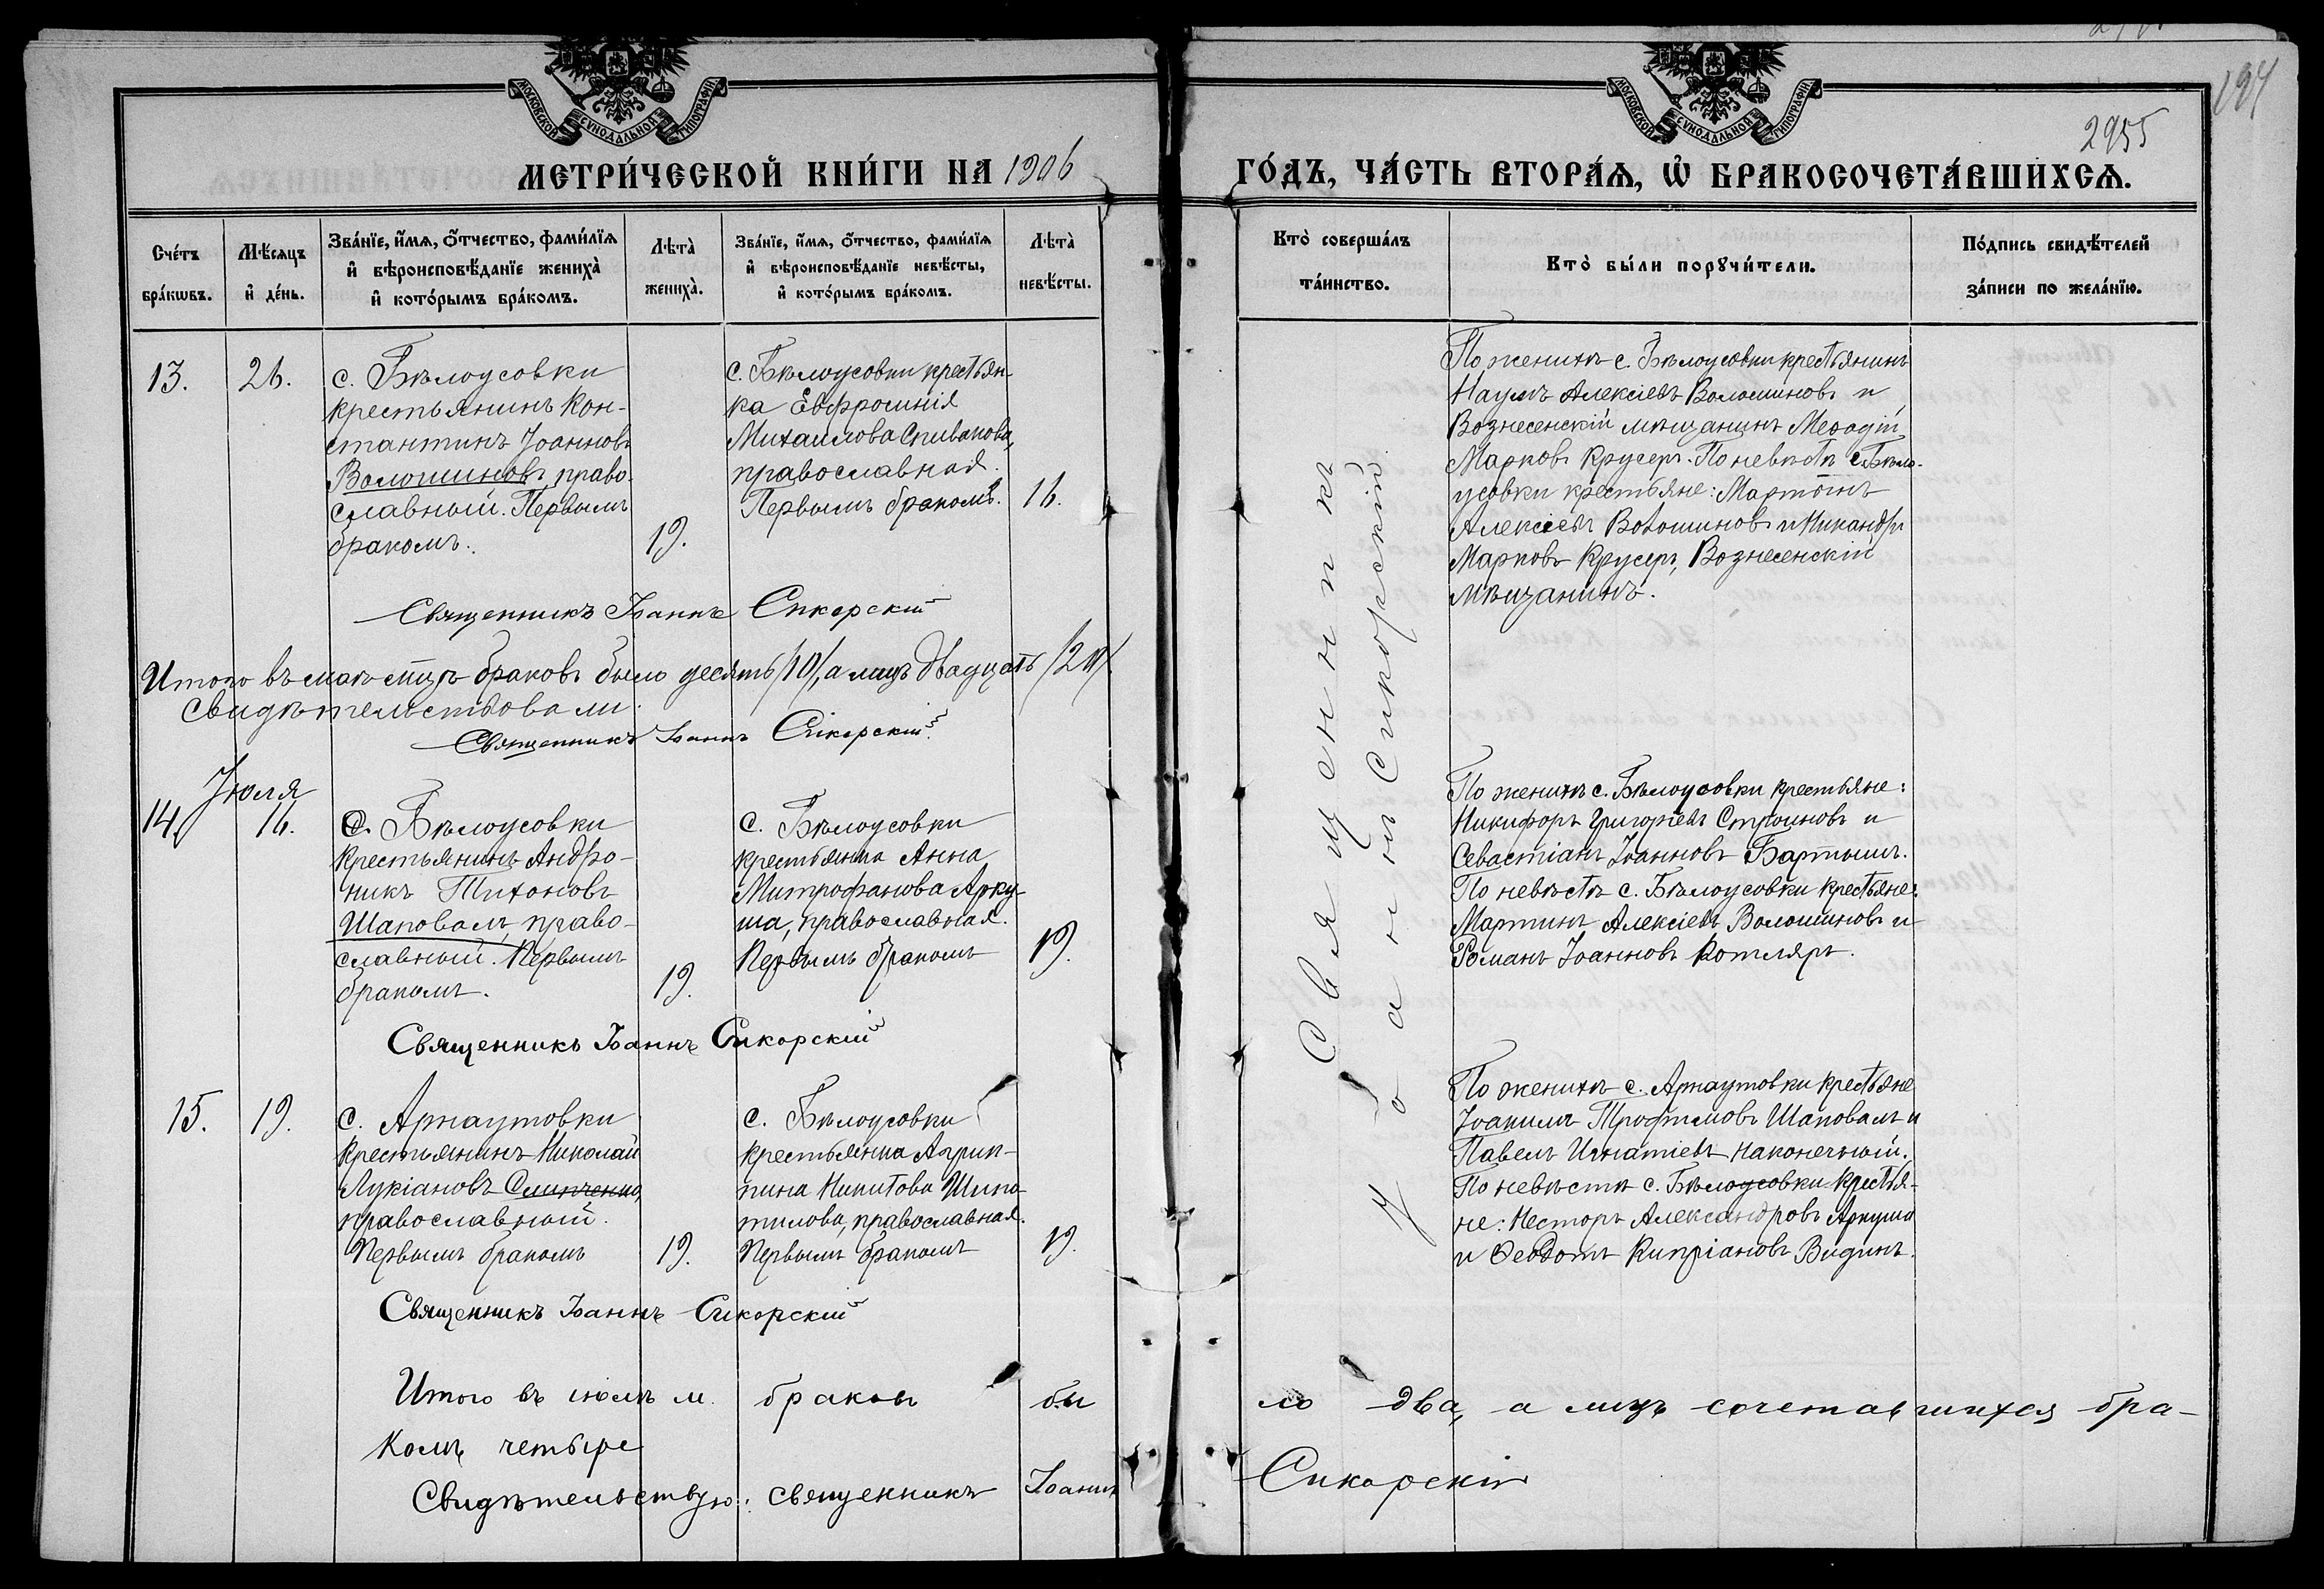 194
2955
МОСКОВСКОЙ СѴНОДАЛЬНОЙ ТИПОГРАФІИ
МОСКОВСКОЙ СѴНОДАЛЬНОЙ ТИПОГРАФІИ
МЕТРИ́ЧЕСКОЙ КНИ́ГИ НА 1906
ГО́ДЪ, ЧА́СТЬ ВТОРА́Ѧ, Ѡ҆ БРАКОСОЧЕТА́ВШИХСѦ.
Сче́тъ бра́кѡвъ.
Мѣ́сѧцъ и҆ де́нь.
Зва́нїе, и҆́мѧ, ѻ҆́тчество, фами́лїѧ и҆ вѣроисповѣ́данїе жениха̀ и҆ кото́рымъ бра́комъ.
Лѣта̀ жениха̀.
Зва́нїе, и҆́мѧ, ѻ҆́тчество, фами́лїѧ и҆ вѣроисповѣ́данїе невѣ́сты, и҆ кото́рымъ бра́комъ.
Лѣта̀ невѣ́сты.
Кто̀ соверша́лъ та́инство.
Кто̀ бы́ли порꙋчи́тели.
По́дпись свидѣ́телей за́писи по жела́нїю.
13.
26.
с. Бѣлоусовки
крестьянинъ Кон-
стантинъ Іоанновъ
Волошиновъ, право-
славный. Первымъ
бракомъ.
19.
с. Бѣлоусовки крестьян-
ка Евфросинія
Михаилова Спивакова,
православная.
Первымъ бракомъ.
16.
Священникъ
Іоаннъ Сикорскій.
По женихѣ с. Бѣлоусовки крестьянинъ
Наумъ Алексіевъ Волошиновъ и
Вознесенскій мѣщанинъ Меѳодій
Марковъ Крусеръ. По невѣстѣ с. Бѣло-
усовки крестьяне: Мартинъ
Алексіевъ Волошиновъ и Никандръ
Марковъ Крусеръ, Вознесенскій
мѣщанинъ.
Священникъ Іоаннъ Сикорскій
Итого въ маѣ мцѣ браковъ было десять /10/, а лицъ двадцать /20/.
Свидѣтельствовали:
Священникъ Іоаннъ Сікорскій.
Іюля
14.
16.
с. Бѣлоусовки
крестьянинъ Андро-
никъ Тихоновъ
Шаповалъ, право-
славный. Первымъ
бракомъ.
19.
с. Бѣлоусовки
крестьянка Анна
Митрофанова Арку-
ша, православная.
Первымъ бракомъ
19.
По женихѣ с. Бѣлоусовки крестьяне:
Никифоръ Григоріевъ Строиновъ и
Севастіанъ Іоанновъ Бартышъ.
По невѣстѣ с. Бѣлоусовки крестьяне:
Мартинъ Алексіевъ Волошиновъ и
Романъ Іоанновъ Котляръ.
Священникъ Іоаннъ Сикорскій
15.
19.
с. Арнаутовки
крестьянинъ Николай
Лукіановъ Слинченко,
православный.
Первымъ бракомъ
19.
с. Бѣлоусовки
крестьянка Агрип-
пина Никитова Шипо-
тилова, православная.
Первымъ бракомъ
19.
По женихѣ с. Арнаутовки крестьяне
Іоакимъ Трофимовъ Шаповалъ и
Павелъ Игнатіевъ Наконечный.
По невѣстѣ с. Бѣлоусовки крестья-
не: Несторъ Александровъ Аркуша
и Ѳеодотъ Кипріановъ Видинъ.
Священникъ Іоаннъ Сикорскій
Итого въ іюлѣ м. браковъ было два, а лицъ сочетавшихся бра-
комъ четыре
Свидѣтельствую: священникъ Іоаннъ Сикорскій